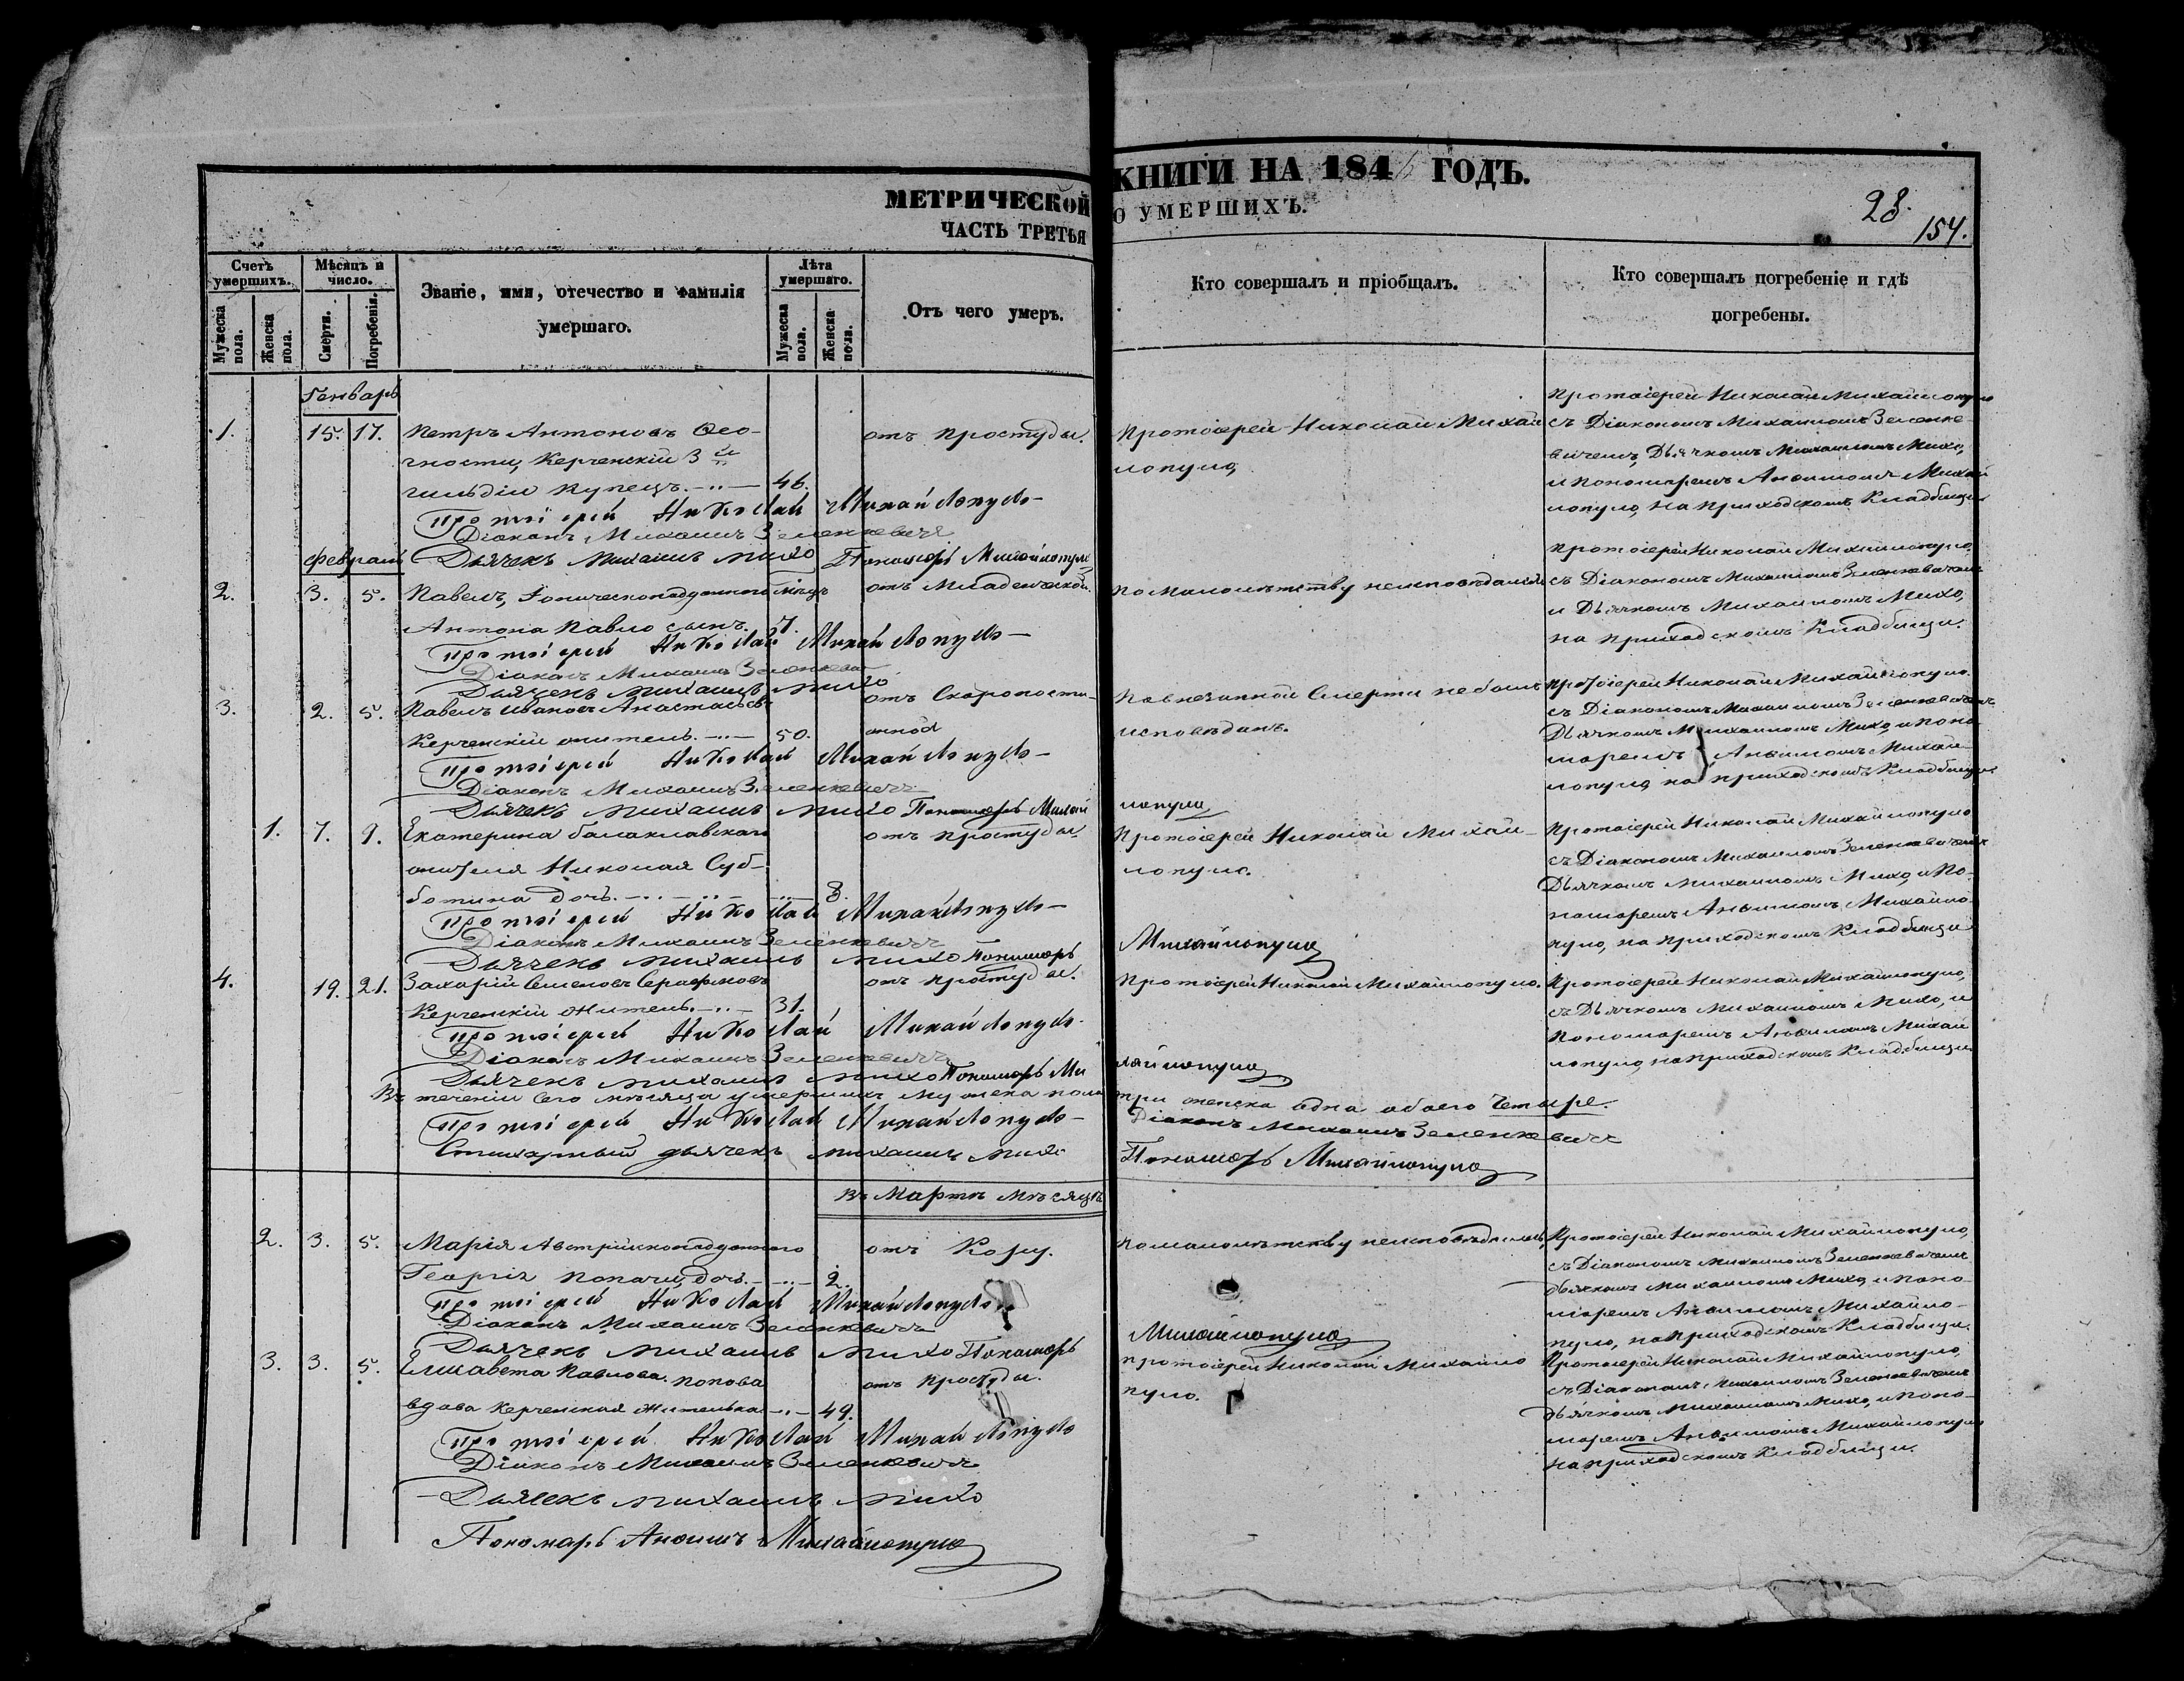 МЕТРИЧЕСКОЙ КНИГИ НА 184 ГОДЪ.
ЧАСТЬ ТРЕТЬЯ О УМЕРШИХЪ.
28.
154.
Счетъ умершихъ.
Мужеска пола.
Женска пола.
Мѣсяцъ и число.
Смерти.
Погребенія.
Званіе, имя, отечество и фамилія
умершаго.
Лѣта умершаго.
Мужеска пола.
Женска пола.
Отъ чего умеръ.
Кто совершалъ и пріобщалъ.
Кто совершалъ погребеніе и гдѣ
погребены.
Генварь
1. 15. 17. Петръ Антоновъ Ѳео-
Керченскій 3й
гильдіи Купецъ. 46.
отъ простуды.
Протоіерей Николай Михай
лопуло,
Протоіерей Николай Михайлопуло
съ Діакономъ Михаиломъ Зеленке-
вичемъ, Дьячкомъ Михаиломъ Михо,
и Пономаремъ Анѳимомъ Михай
лопуло, на приходскомъ Кладбищѣ
Протоіерей Николай Михайлопуло
Діаконъ Михаилъ Зеленкевичъ
Дьячекъ Михаилъ Михо Пономарь Михайлопуло
Февраль
2. 3. 5. Павелъ, Іоническоподданнаго
Антона Павло сынъ. 7. мѣсц
отъ Младенческой.
По малолѣтству неисповѣданъ
Протоіерей Николай Михайлопуло,
съ Діакономъ Михаиломъ Зеленкевичемъ
и Дьячкомъ Михаиломъ Михо,
на приходскомъ Кладбищѣ.
Протоіерей Николай Михайлопуло
Діаконъ Михаилъ Зеленкевичъ
Дьячекъ Михаилъ Михо
3. 2. 5. Павелъ Ивановъ Анастасьевъ
Керченскій житель. 50.
отъ Скоропости-
жной
По внезапной Смерти не былъ
исповѣданъ.
Протоіерей Николай Михайлопуло
съ Діакономъ Михаиломъ Зеленкевичемъ
Дьячкомъ Михаиломъ Михо, и Поно
маремъ Анѳимомъ Михай-
лопуло, на приходскомъ Кладбищѣ
Протоіерей Николай Михайлопуло
Діаконъ Михаилъ Зеленкевичъ
Дьячекъ Михаилъ Михо Пономарь Михай
лопуло
1. 7. 9. Екатерина балаклавскаго
жителя Николая Суб-
ботина дочь. 8.
отъ простуды
Протоіерей Николай Михай-
лопуло.
Протоіерей Николай Михайлопуло
съ Діакономъ Михаиломъ Зеленкевичемъ
Дьячкомъ Михаиломъ Михо, и По-
номаремъ Анѳимомъ Михайло-
пуло, на приходскомъ Кладбищѣ
Протоіерей Николай Михайлопуло
Діаконъ Михаилъ Зеленкевичъ
Дьячекъ Михаилъ Михо Пономарь
Михайлопуло
4. 19. 21. Захарій Семеновъ Серафимовъ
Керченскій Житель. 31.
отъ простуды.
Протоіерей Николай Михайлопуло.
Протоіерей Николай Михайлопуло,
съ Дьячкомъ Михаиломъ Михо, и
Пономаремъ Анѳимомъ Михай
лопуло, на приходскомъ Кладбищѣ
Протоіерей Николай Михайлопуло
Діаконъ Михаилъ Зеленкевичъ
Дьячекъ Михаилъ Михо Пономарь Ми
хайлопуло
Въ теченіи Сего мѣсяца умершихъ мужеска пола три женска одна обоего Четыре.
Протоіерей Николай Михайлопуло
Діаконъ Михаилъ Зеленкевичъ
Стихарный дьячекъ Михаилъ Михо
Пономарь Михайлопуло
Въ Мартѣ мѣсяцѣ
2. 3. 5. Марія Австрійскоподданнаго
Георгія дочь. 2.
отъ Кору.
По малолѣтству неисповѣдана,
Протоіерей Николай Михайлопуло,
съ Діакономъ Михаиломъ Зеленкевичемъ
дьячкомъ Михаиломъ Михо, и Поно-
маремъ Анѳимомъ Михайло-
пуло, на приходскомъ Кладбищѣ.
Протоіерей Николай Михайлопуло
Діаконъ Михаилъ Зеленкевичъ
Дьячекъ Михаилъ Михо Пономарь
Михайлопуло
3. 3. 5. Елисавета Павлова Попова
вдова Керченская жителька 49.
отъ простуды.
Протоіерей Николай Михайло
пуло.
Протоіерей Николай Михайлопуло,
съ Діакономъ Михаиломъ Зеленкевичемъ
дьячкомъ Михаиломъ Михо, и Поно-
маремъ Анѳимомъ Михайлопуло
на приходскомъ Кладбищѣ.
Протоіерей Николай Михайлопуло
Діаконъ Михаилъ Зеленкевичъ
Дьячекъ Михаилъ Михо
Пономарь Анѳимъ Михайлопуло